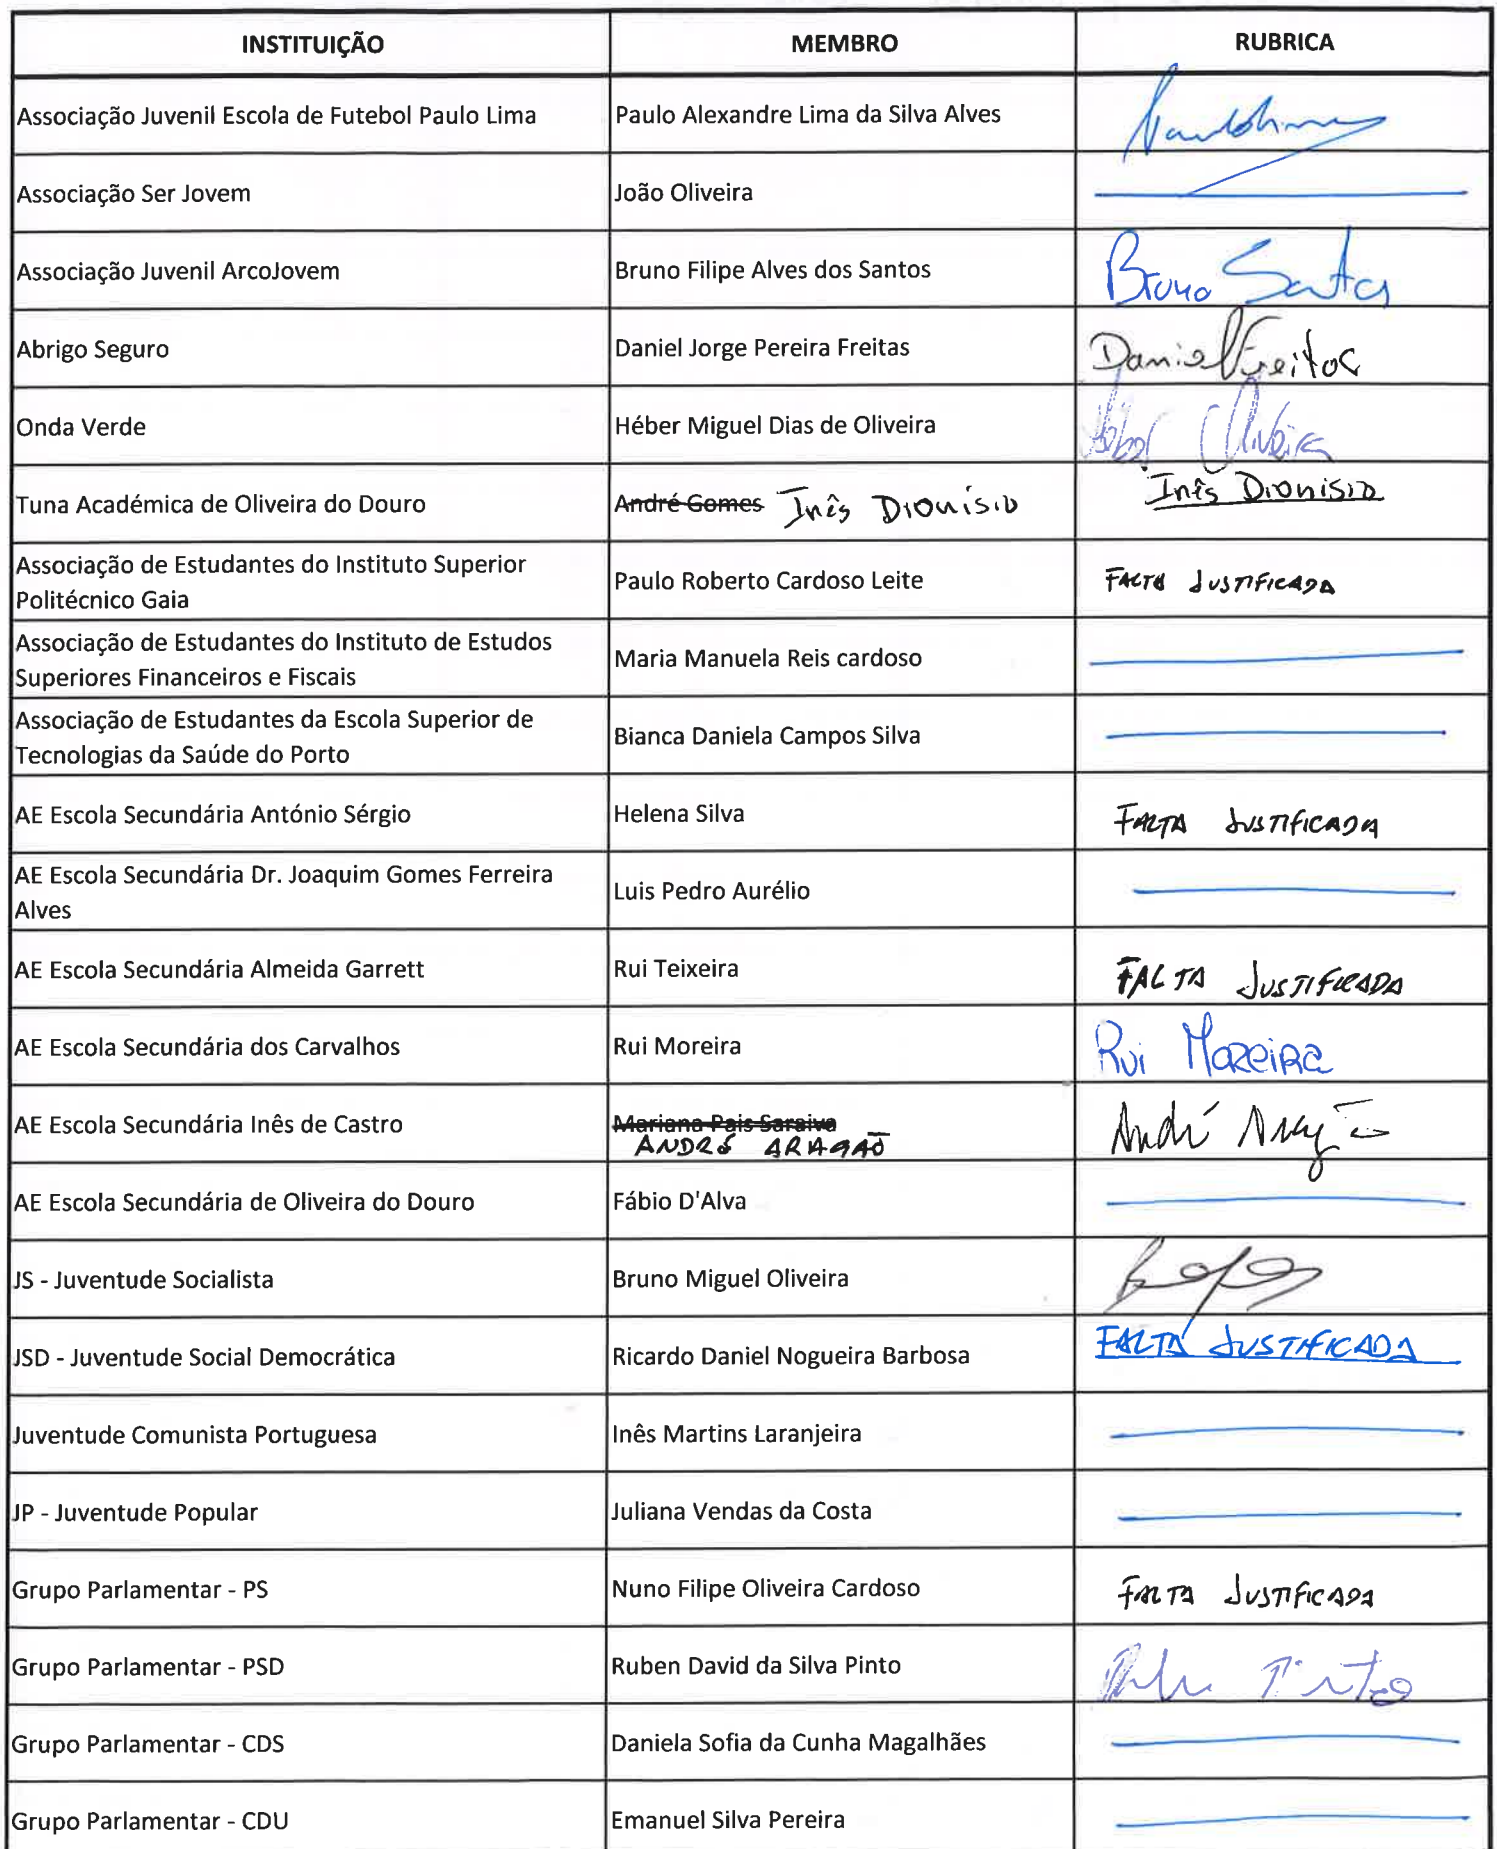 INSTITUIÇÃO MEMBRO RUBRICA
Associação Juvenil Escola de Futebol Paulo Lima Paulo Alexandre Lima da Silva Alves
Associação Ser Jovem João Oliveira
Associação Juvenil ArcoJovem Bruno Filipe Alves dos Santos Bruno Santos
Abrigo Seguro Daniel Jorge Pereira Freitas Daniel Freitas
Onda Verde Héber Miguel Dias de Oliveira Héber Oliveira
Tuna Académica de Oliveira do Douro André Gomes Inês Dionísio Inês Dionísio
Associação de Estudantes do Instituto Superior
Politécnico Gaia Paulo Roberto Cardoso Leite FALTA JUSTIFICADA
Associação de Estudantes do Instituto de Estudos
Superiores Financeiros e Fiscais Maria Manuela Reis cardoso
Associação de Estudantes da Escola Superior de
Tecnologias da Saúde do Porto Bianca Daniela Campos Silva
AE Escola Secundária António Sérgio Helena Silva FALTA JUSTIFICADA
AE Escola Secundária Dr. Joaquim Gomes Ferreira
Alves Luis Pedro Aurélio
AE Escola Secundária Almeida Garrett Rui Teixeira FALTA JUSTIFICADA
AE Escola Secundária dos Carvalhos Rui Moreira Rui Moreira
AE Escola Secundária Inês de Castro Mariana Pais Saraiva
ANDRÉ ARAGÃO André Aragão
AE Escola Secundária de Oliveira do Douro Fábio D'Alva
JS - Juventude Socialista Bruno Miguel Oliveira
JSD - Juventude Social Democrática Ricardo Daniel Nogueira Barbosa FALTA JUSTIFICADA
Juventude Comunista Portuguesa Inês Martins Laranjeira
JP - Juventude Popular Juliana Vendas da Costa
Grupo Parlamentar - PS Nuno Filipe Oliveira Cardoso FALTA JUSTIFICADA
Grupo Parlamentar - PSD Ruben David da Silva Pinto Pinto
Grupo Parlamentar - CDS Daniela Sofia da Cunha Magalhães
Grupo Parlamentar - CDU Emanuel Silva Pereira